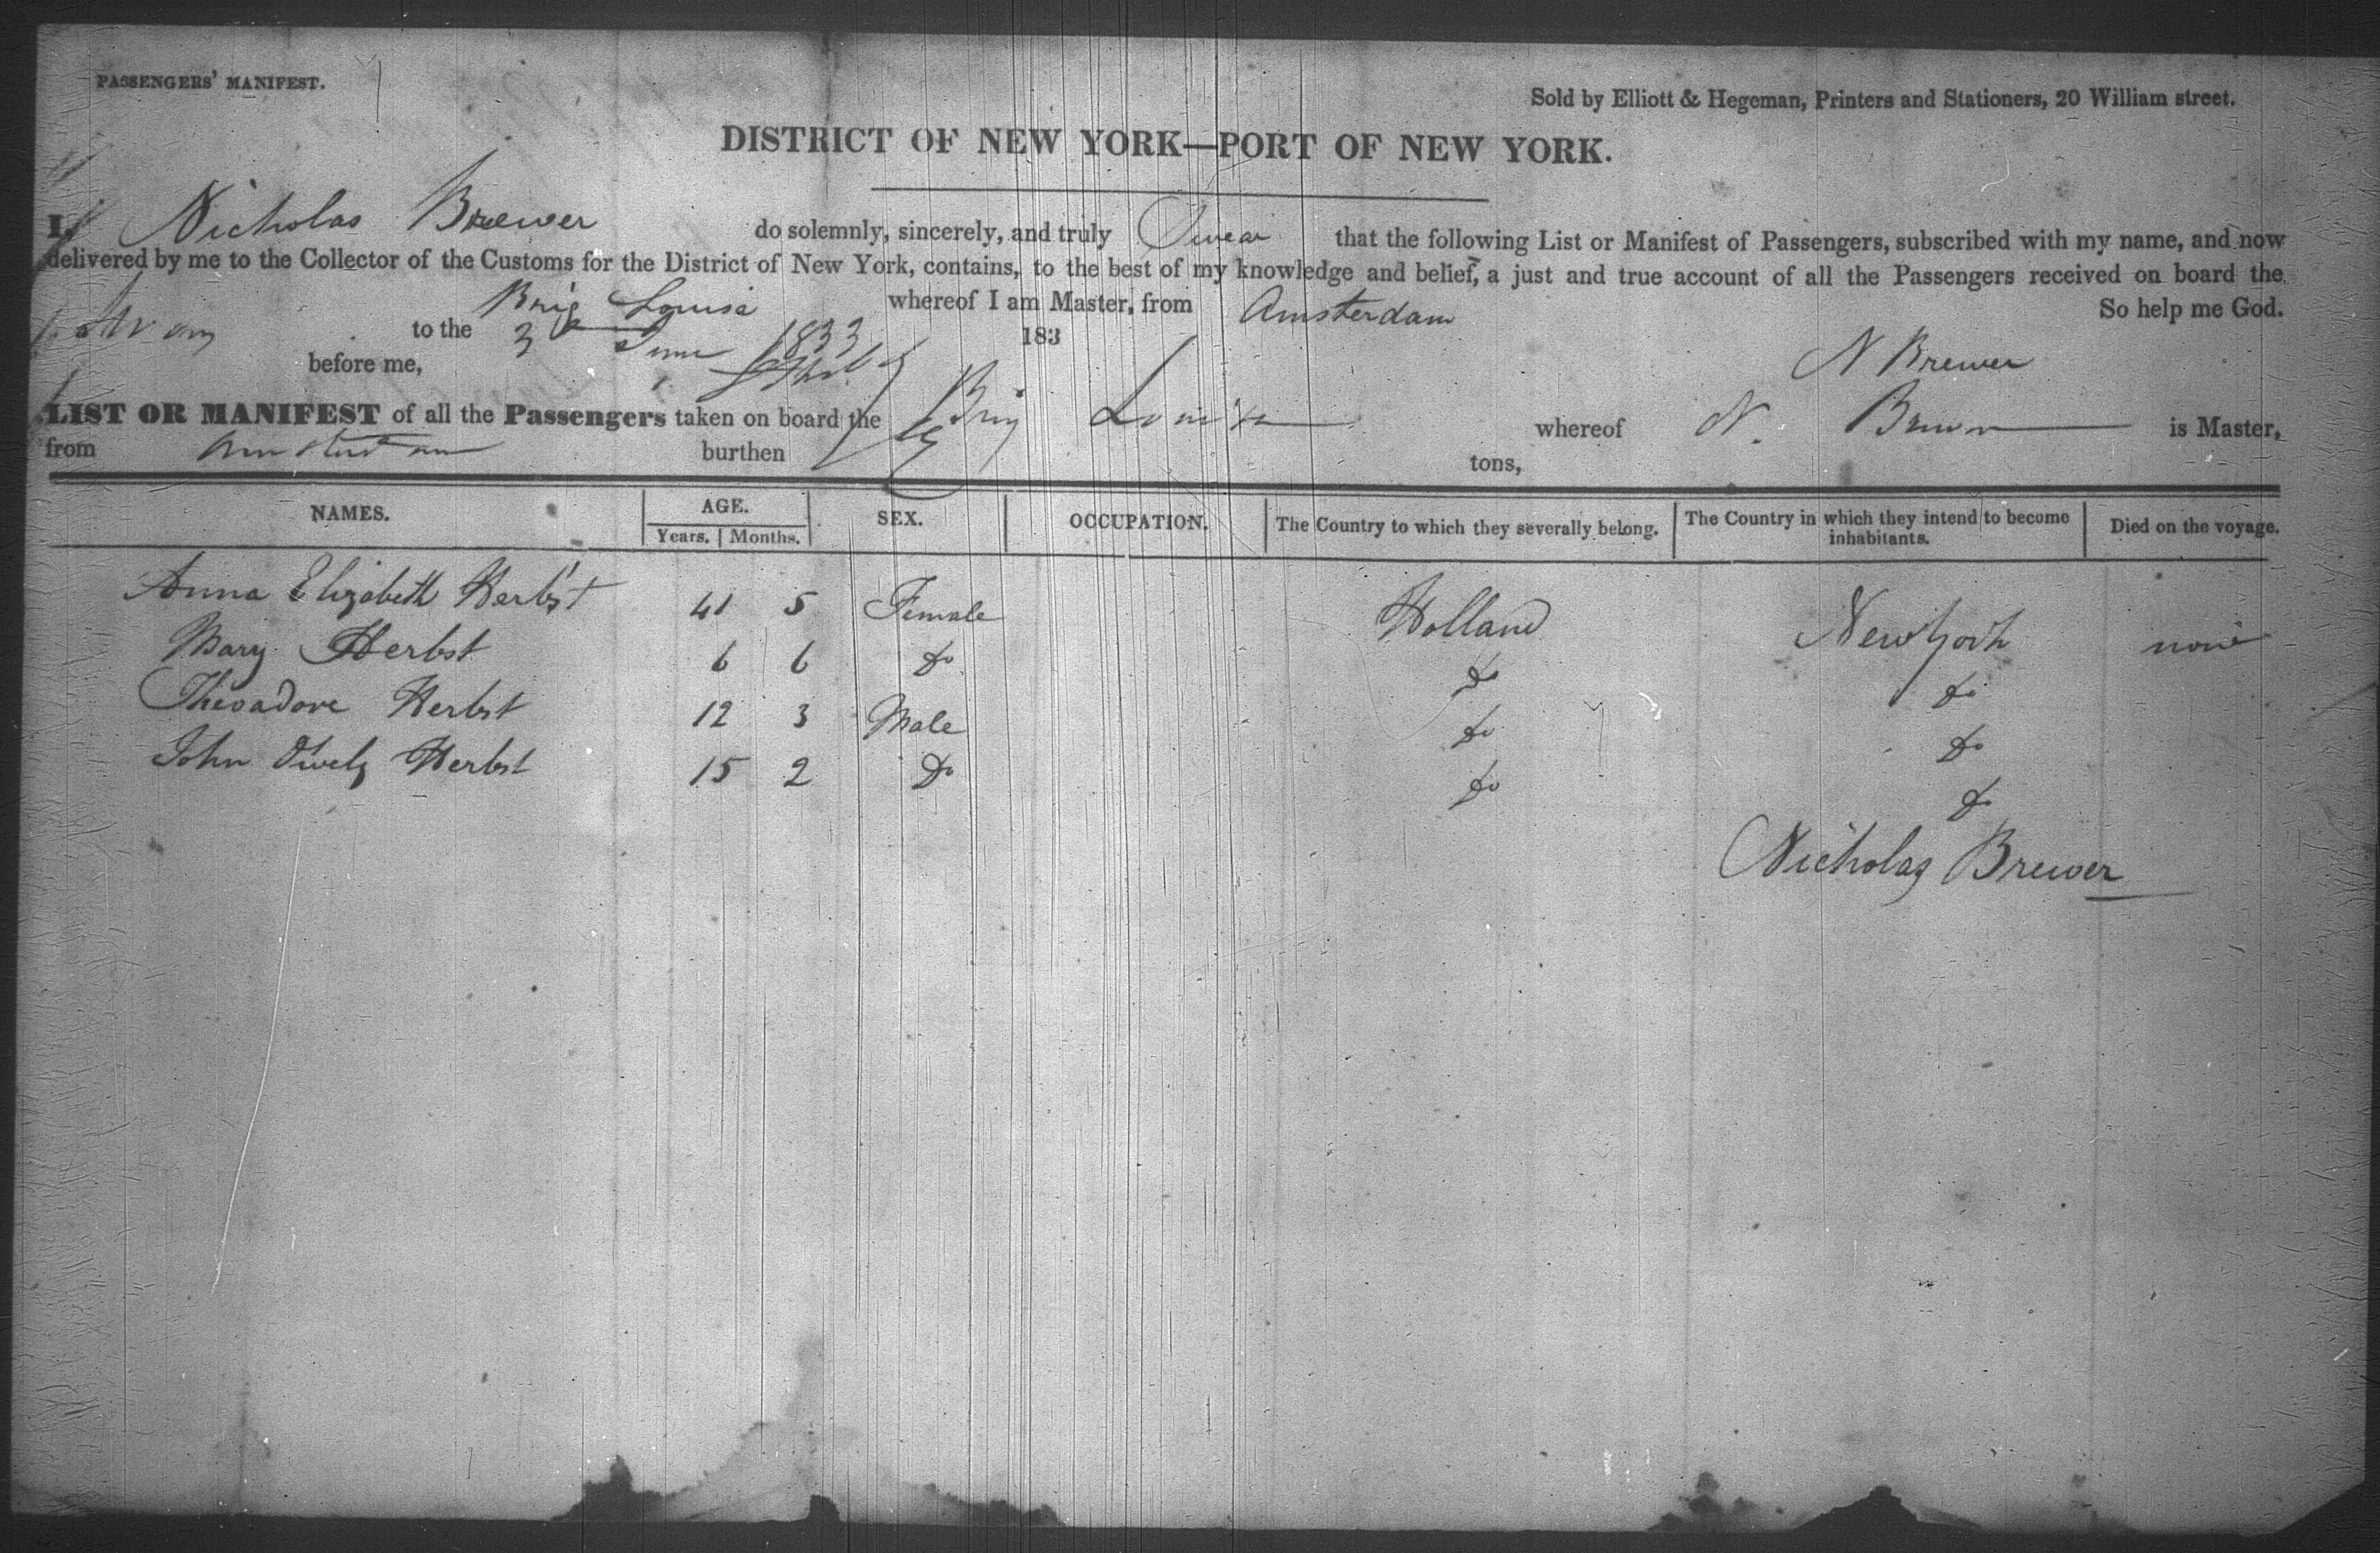 PASSENGERS' MANIFEST.
Sold by Elliott & Hegeman, Printers and Stationers, 20 William street.
DISTRICT OF NEW YORK—PORT OF NEW YORK.
I, Nicholas Brewer do solemnly, sincerely, and truly Swear that the following List or Manifest of Passengers, subscribed with my name, and now
delivered by me to the Collector of the Customs for the District of New York, contains, to the best of my knowledge and belief, a just and true account of all the Passengers received on board the
Brig Louisa whereof I am Master, from Amsterdam So help me God.
to the 3 June 1833 183
before me, N Brewer
LIST OR MANIFEST of all the Passengers taken on board the Brig Louisa whereof N. Brewer is Master,
from Amsterdam burthen tons,
NAMES. AGE. SEX. OCCUPATION. The Country to which they severally belong. The Country in which they intend to become inhabitants. Died on the voyage.
Years. Months.
Anna Elizabeth Herbst 41 5 Female Holland New York none
Mary Herbst 6 6 do do do
Theoadore Herbst 12 3 Male do do
John Herbst 15 2 do do do
Nicholas Brewer